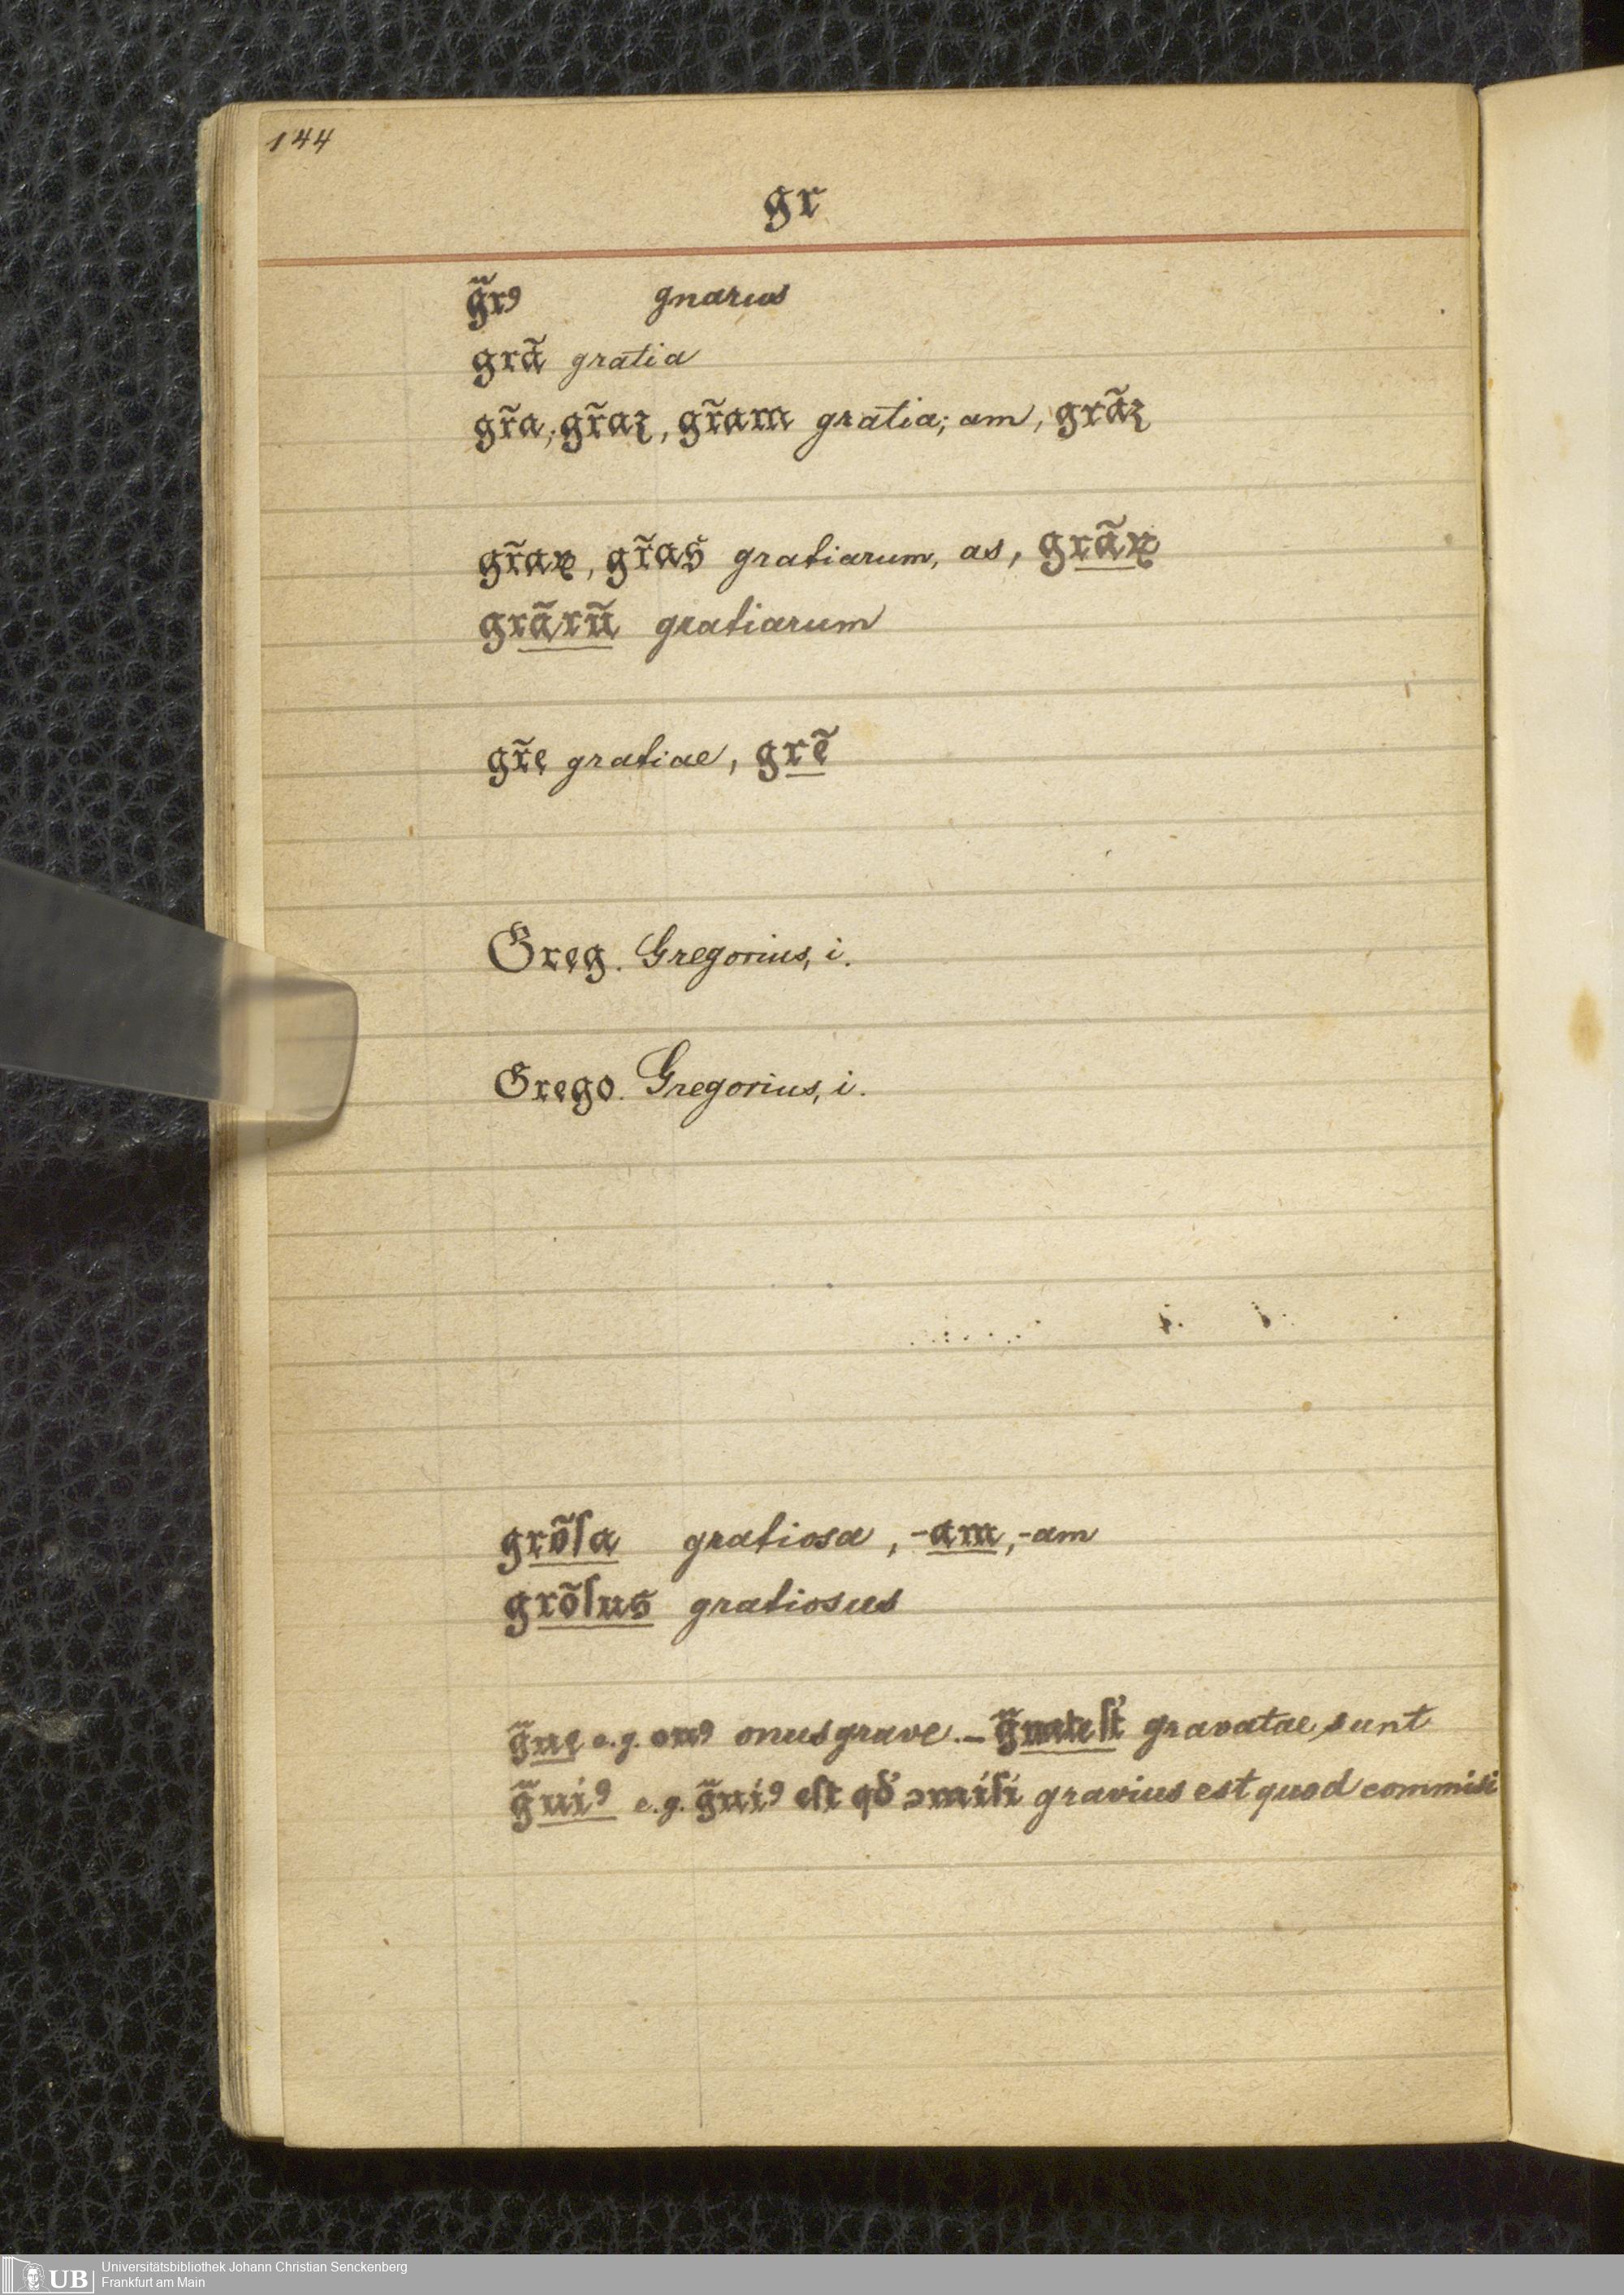 144
gr
g̃rꝰ gnarus
grã gratia
gr̃a; gr̃aʒ, gr̃am gratia; am, grãʒ
gr̃aꝝ, gr̃as gratiarum, as, grãꝝ
grãrũ gratiarum
gr̃e gratiae, grẽ
Greg. Gregorius, i.
Grego. Gregorius, i.
grõſa gratiosa, -am, -am
grõſus gratiosus
g̃ue e.g. onꝰ onus grave. – g̃uate ſt̃ gravatae sunt
g̃uiꝰ e.g. g̃uiꝰ eſt qđ ꝯmiſi gravius est quod commisi
UB Universitätsbibliothek Johann Christian Senckenberg
Frankfurt am Main